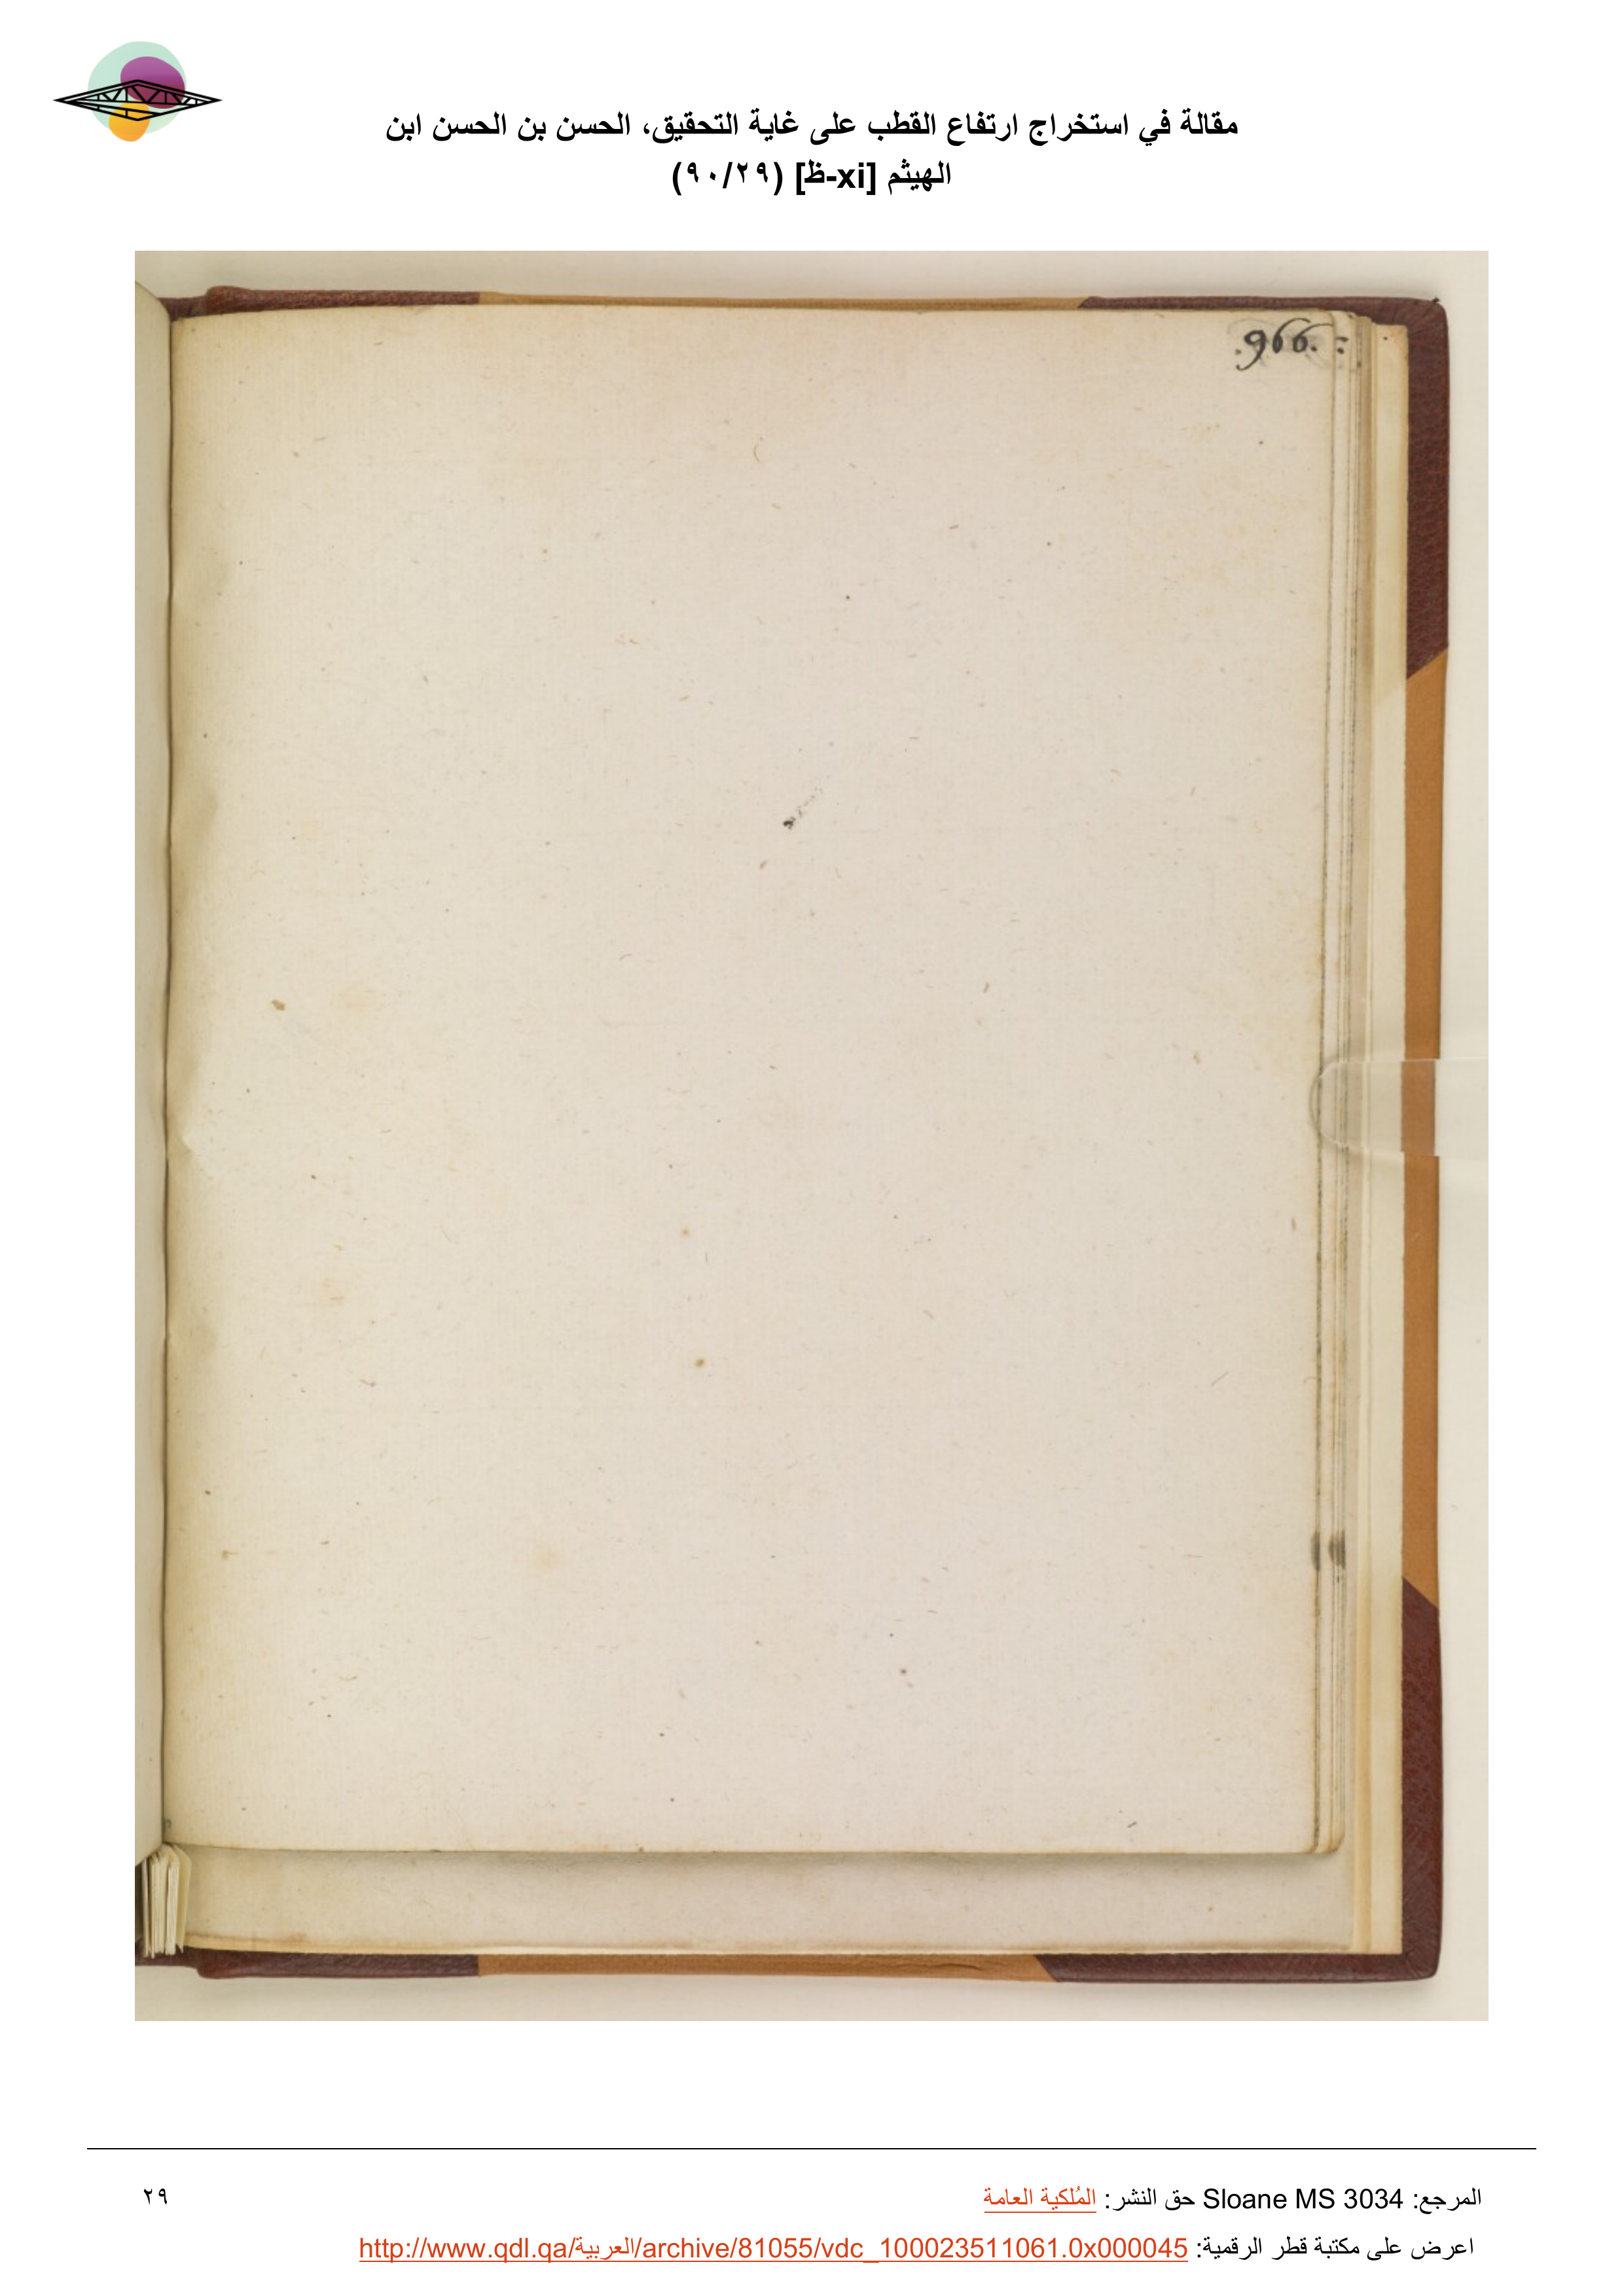 مقالة في استخراج ارتفاع القطب على غاية التحقيق، الحسن بن الحسن ابن
الهيثم [xi-ظ] (٩٠/٢٩)
.966. :
المرجع: Sloane MS 3034 حق النشر: المُلكية العامة
٢٩
اعرض على مكتبة قطر الرقمية: http://www.qdl.qa/العربية/archive/81055/vdc_100023511061.0x000045